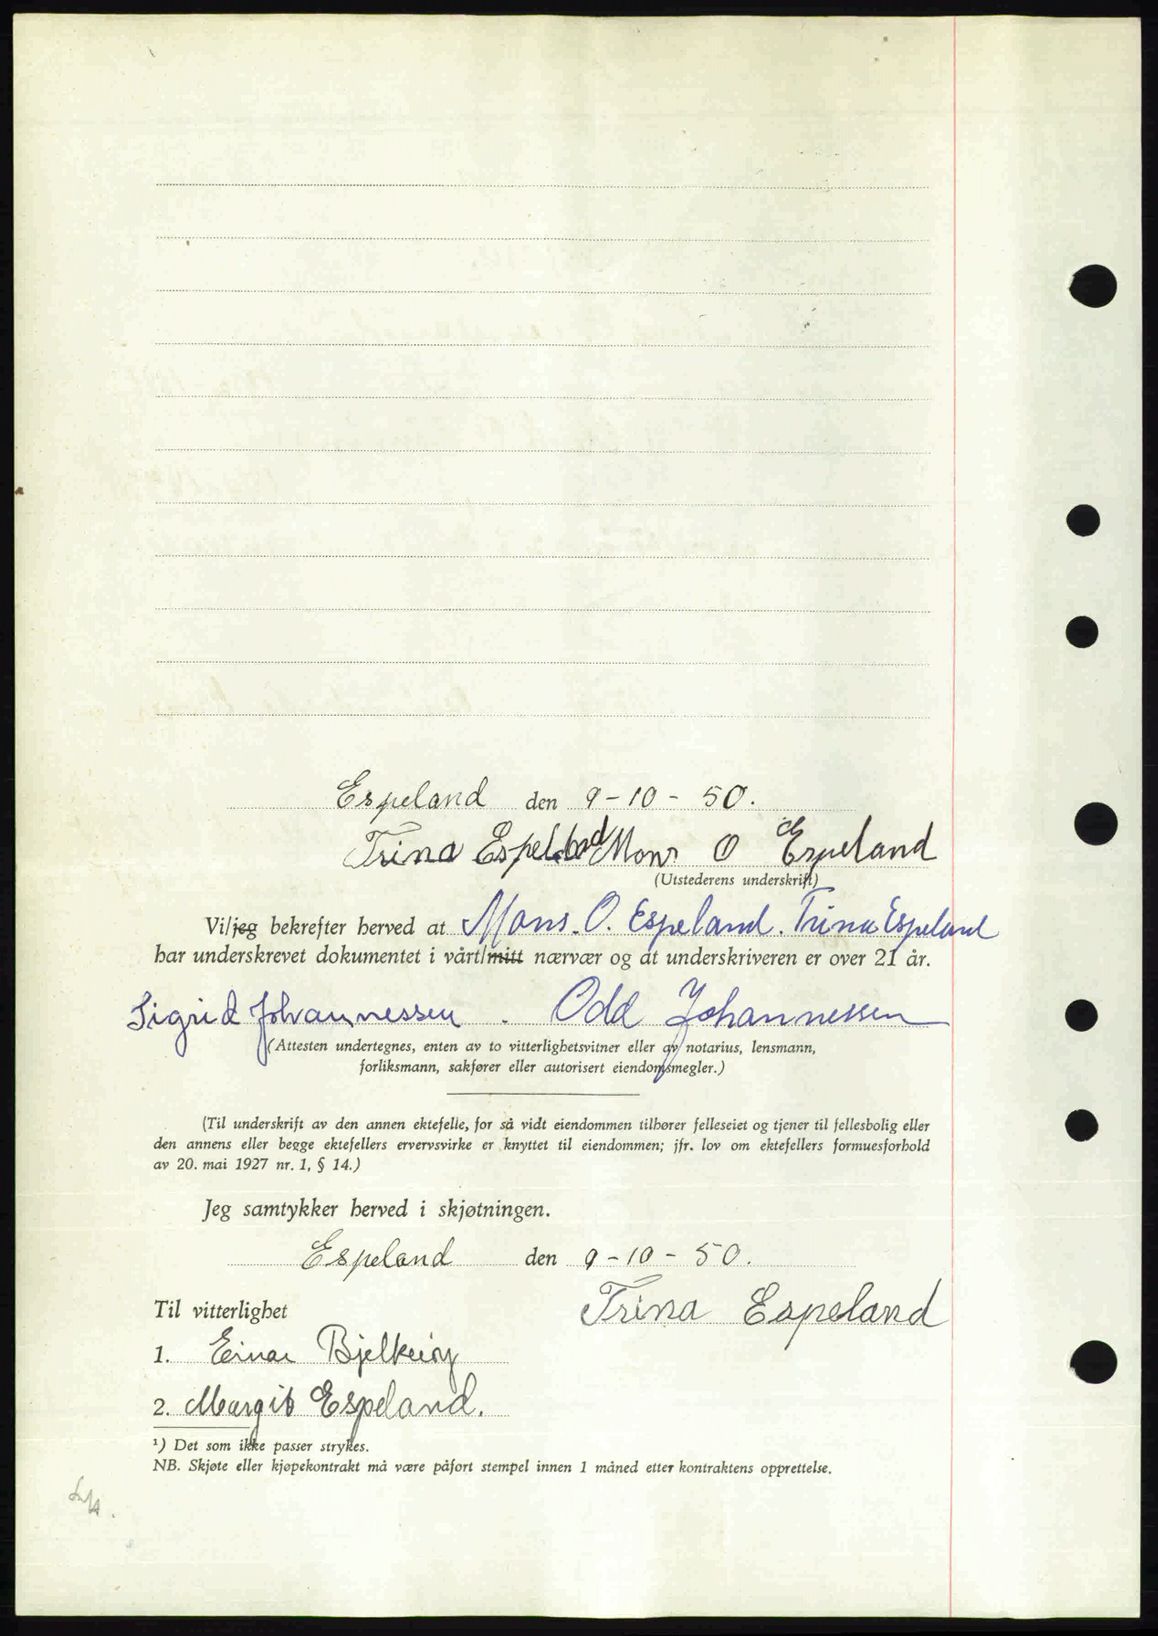 Espeland den 9-10-50.
Trina Espeland Mons O Espeland
(Utstederens underskrift)
Vi/jeg bekrefter herved at Mons. O. Espeland. Trina Espeland
har underskrevet dokumentet i vårt/mitt nærvær og at underskriveren er over 21 år.
Sigrid Johannessen . Odd Johannessen
(Attesten undertegnes, enten av to vitterlighetsvitner eller av notarius, lensmann,
forliksmann, sakfører eller autorisert eiendomsmegler.)
(Til underskrift av den annen ektefelle, for så vidt eiendommen tilhører felleseiet og tjener til fellesbolig eller
den annens eller begge ektefellers ervervsvirke er knyttet til eiendommen; jfr. lov om ektefellers formuesforhold
av 20. mai 1927 nr. 1, § 14.)
Jeg samtykker herved i skjøtningen.
Espeland den 9-10-50.
Til vitterlighet Trina Espeland
1. Einar
2. Margit Espeland.
¹) Det som ikke passer strykes.
NB. Skjøte eller kjøpekontrakt må være påført stempel innen 1 måned etter kontraktens opprettelse.